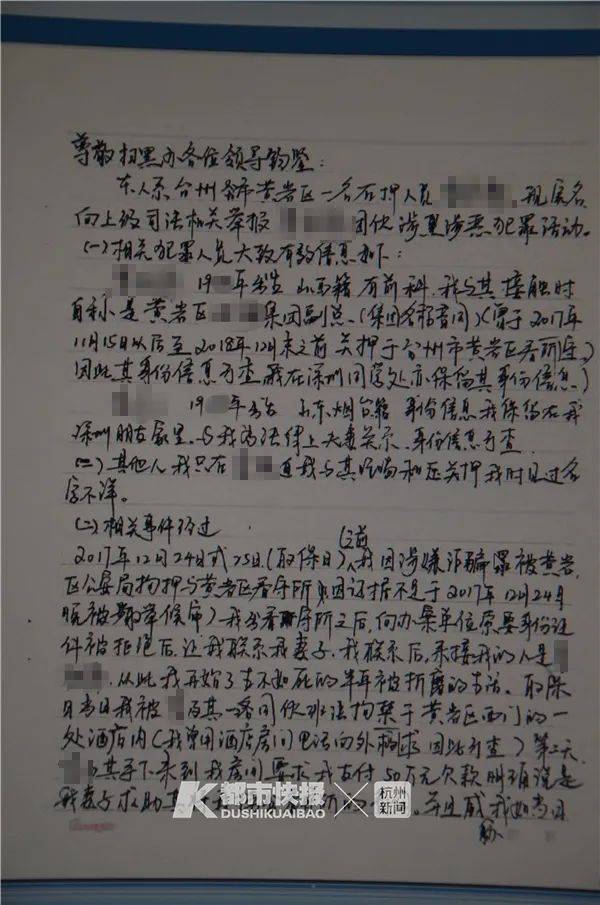 尊敬扫黑办各位领导钧鉴:
本人系台州市黄岩区一名在押人员 现实名
向上级司法相关举报 团伙涉黑涉恶犯罪活动。
(一)相关犯罪人员大致有效信息如下:
19 年出生 山西籍 有前科 我与其接触时
自称是黄岩区 集团副总、(集团名称音同)(曾于2017年
11月15日以后至2018年12月末之前关押于台州市黄岩区看守所,
因此其身份信息可查 我在深圳同居处亦保留其身份信息)
19 年出生 山东烟台籍 身份信息我保留在我
深圳朋友家里、与我为法律上夫妻关系、身份信息可查
(二)其他人我只在 逼我与其 和 关押我时见过名
字不详。
(二)相关事件经过
2017年12月24日或25日(取保日)(之前)我因涉嫌诈骗罪被黄岩
区公安局拘押与黄岩区看守所 因证据不足于2017年12月24日
晚被 候审)我出看守所之后,向办案单位索要身份证
件被拒绝后,让我联系我妻子、我联系后,来接我的人是
从此我开始了生不如死的半年被折磨的生活。取保
日当日我被 及其一名同伙非法拘禁于黄岩区西门的一
处酒店内(我曾用酒店房间电话向外 求 因此可查)第二天
其手下来到我房间要求我支付50万元欠款 说是
我妻子求助 并且威 我如当日
都市快报
DUSHIKUAIBAO
杭州
新闻